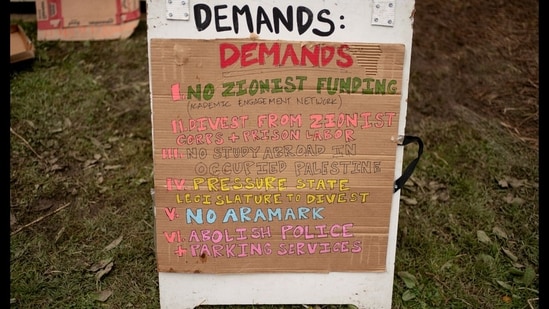 DEMANDS:
DEMANDS
I. NO ZIONIST FUNDING
(ACADEMIC ENGAGEMENT NETWORK)
II. DIVEST FROM ZIONIST
CORPS + PRISON LABOR
III. NO STUDY ABROAD IN
OCCUPIED PALESTINE
IV. PRESSURE STATE
LEGISLATURE TO DIVEST
V. NO ARAMARK
VI. ABOLISH POLICE
+ PARKING SERVICES